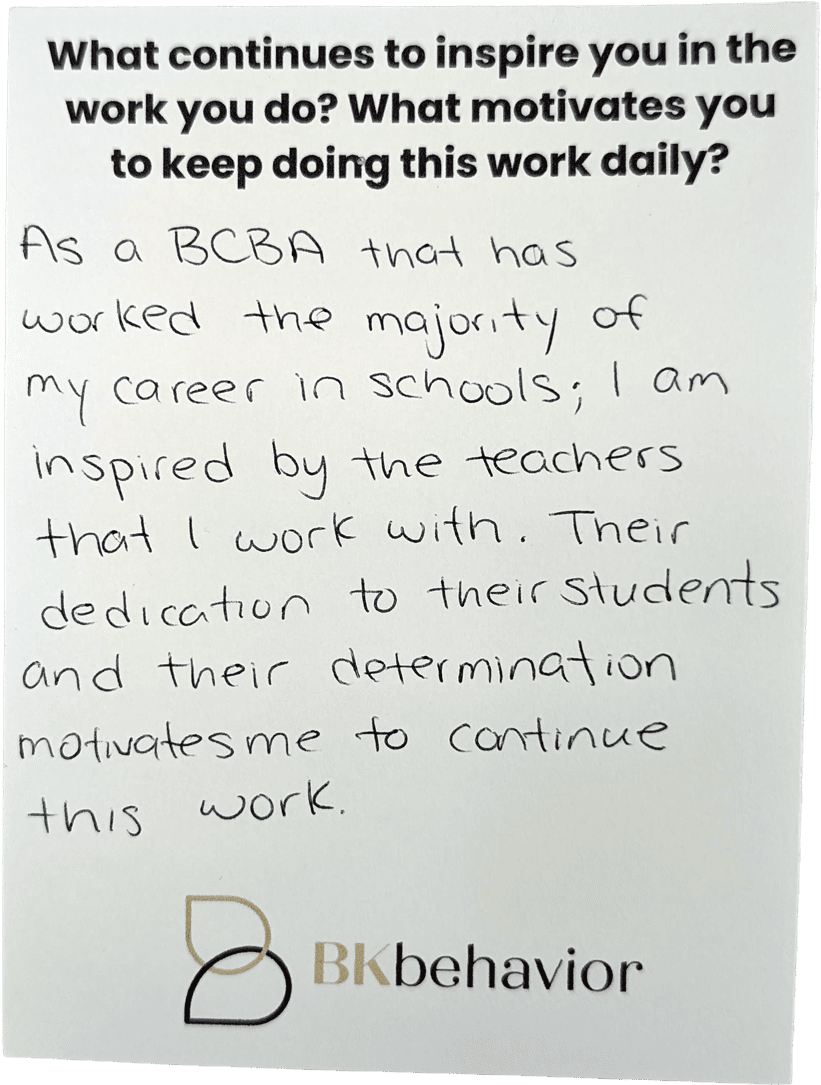 What continues to inspire you in the
work you do? What motivates you
to keep doing this work daily?
As a BCBA that has
worked the majority of
my career in schools; I am
inspired by the teachers
that I work with. Their
dedication to their students
and their determination
motivates me to continue
this work.
BKbehavior